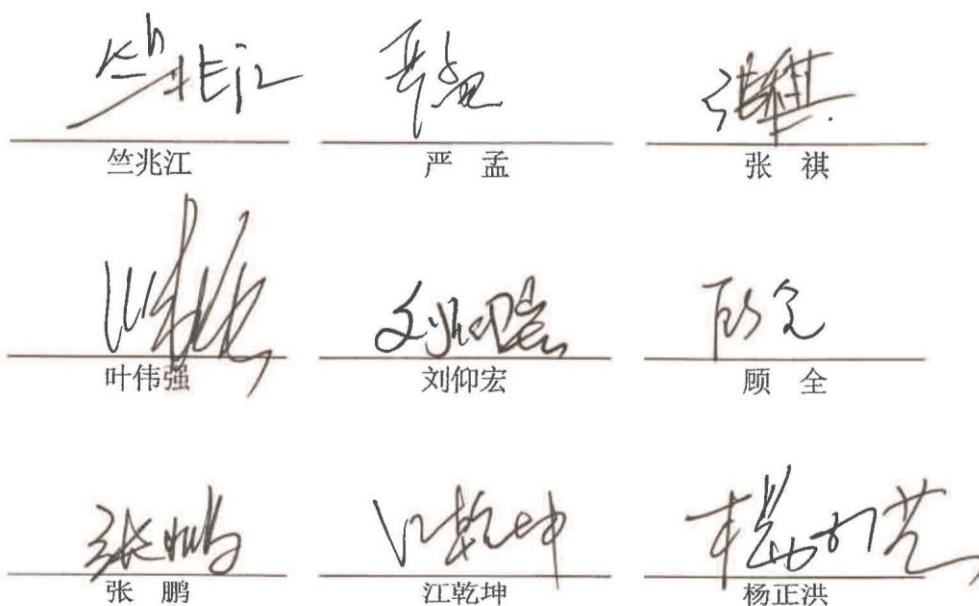 竺兆江 严 孟 张 祺
叶伟强 刘仰宏 顾 全
张 鹏 江乾坤 杨正洪